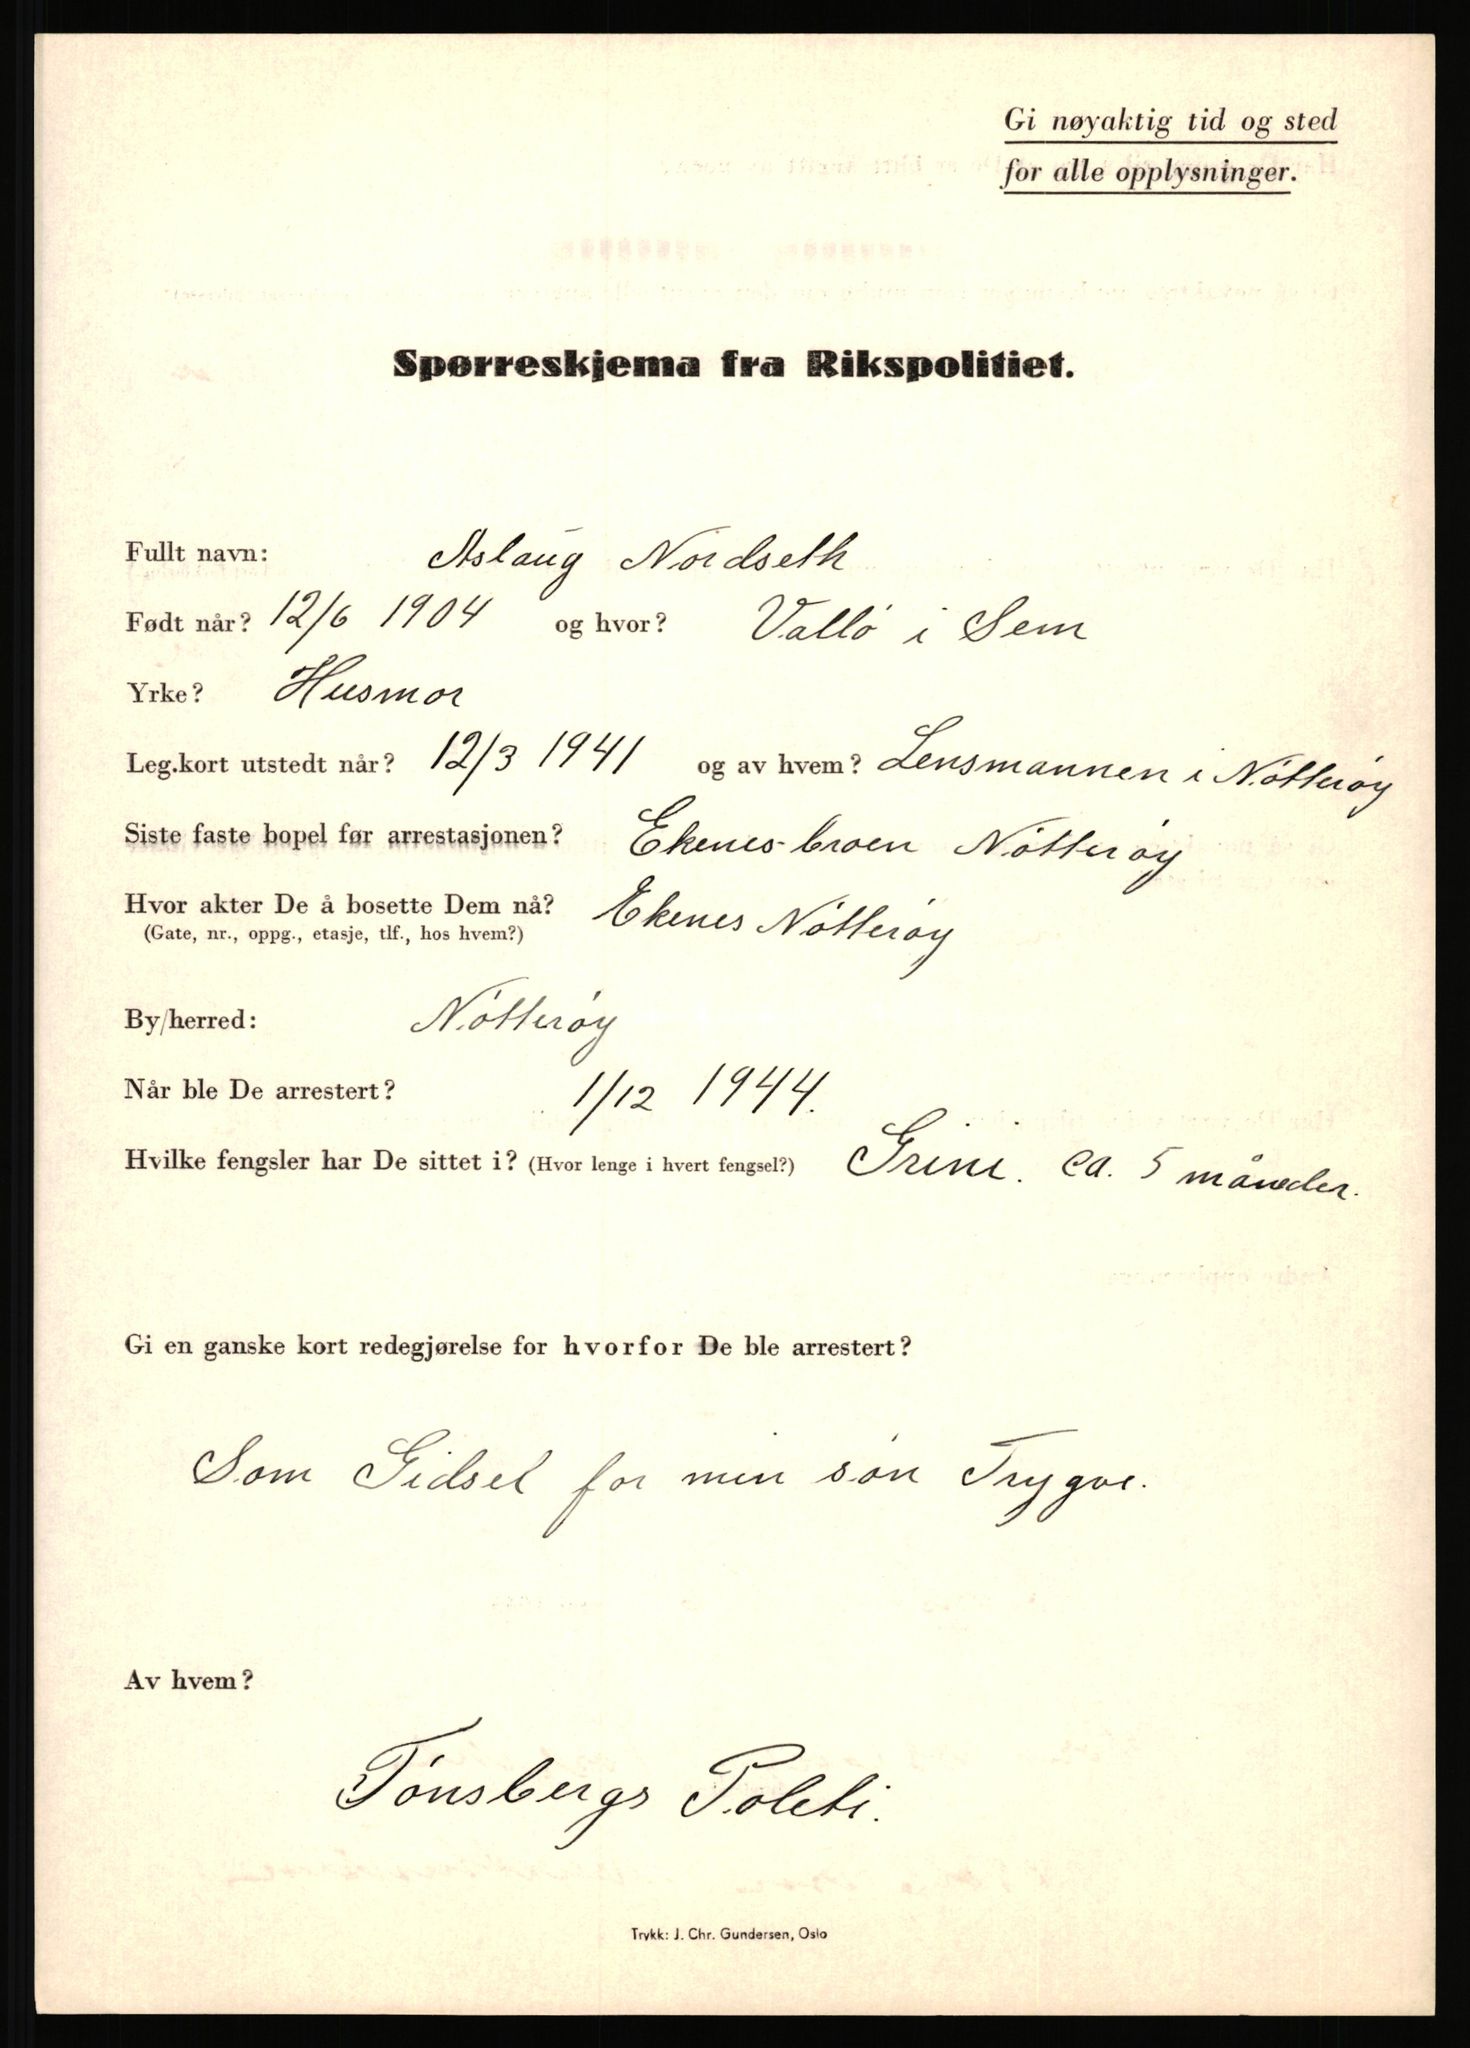 Gi nøyaktig tid og sted
for alle opplysninger.
Spørreskjema fra Rikspolitiet.
Fullt navn: Aslaug Nordseth
Født når? 12/6 1904 og hvor? Valló i Sem
Yrke? Husmor
Leg.kort utstedt når? 12/3 1941 og av hvem? Lensmannen i Nótterøy
Siste faste bopel før arrestasjonen? Ekenes-broen Nótterøy
Hvor akter De å bosette Dem nå? Ekenes Nótterøy
(Gate, nr., oppg., etasje, tlf., hos hvem?)
By/herred: Nótterøy
Når ble De arrestert? 1/12 1944.
Hvilke fengsler har De sittet i? (Hvor lenge i hvert fengsel?) Grini. ca. 5 måneder.
Gi en ganske kort redegjørelse for hvorfor De ble arrestert?
Som Gidsel for min són Trygve.
Av hvem?
Tónsbergs Politi.
Trykk: J. Chr. Gundersen, Oslo